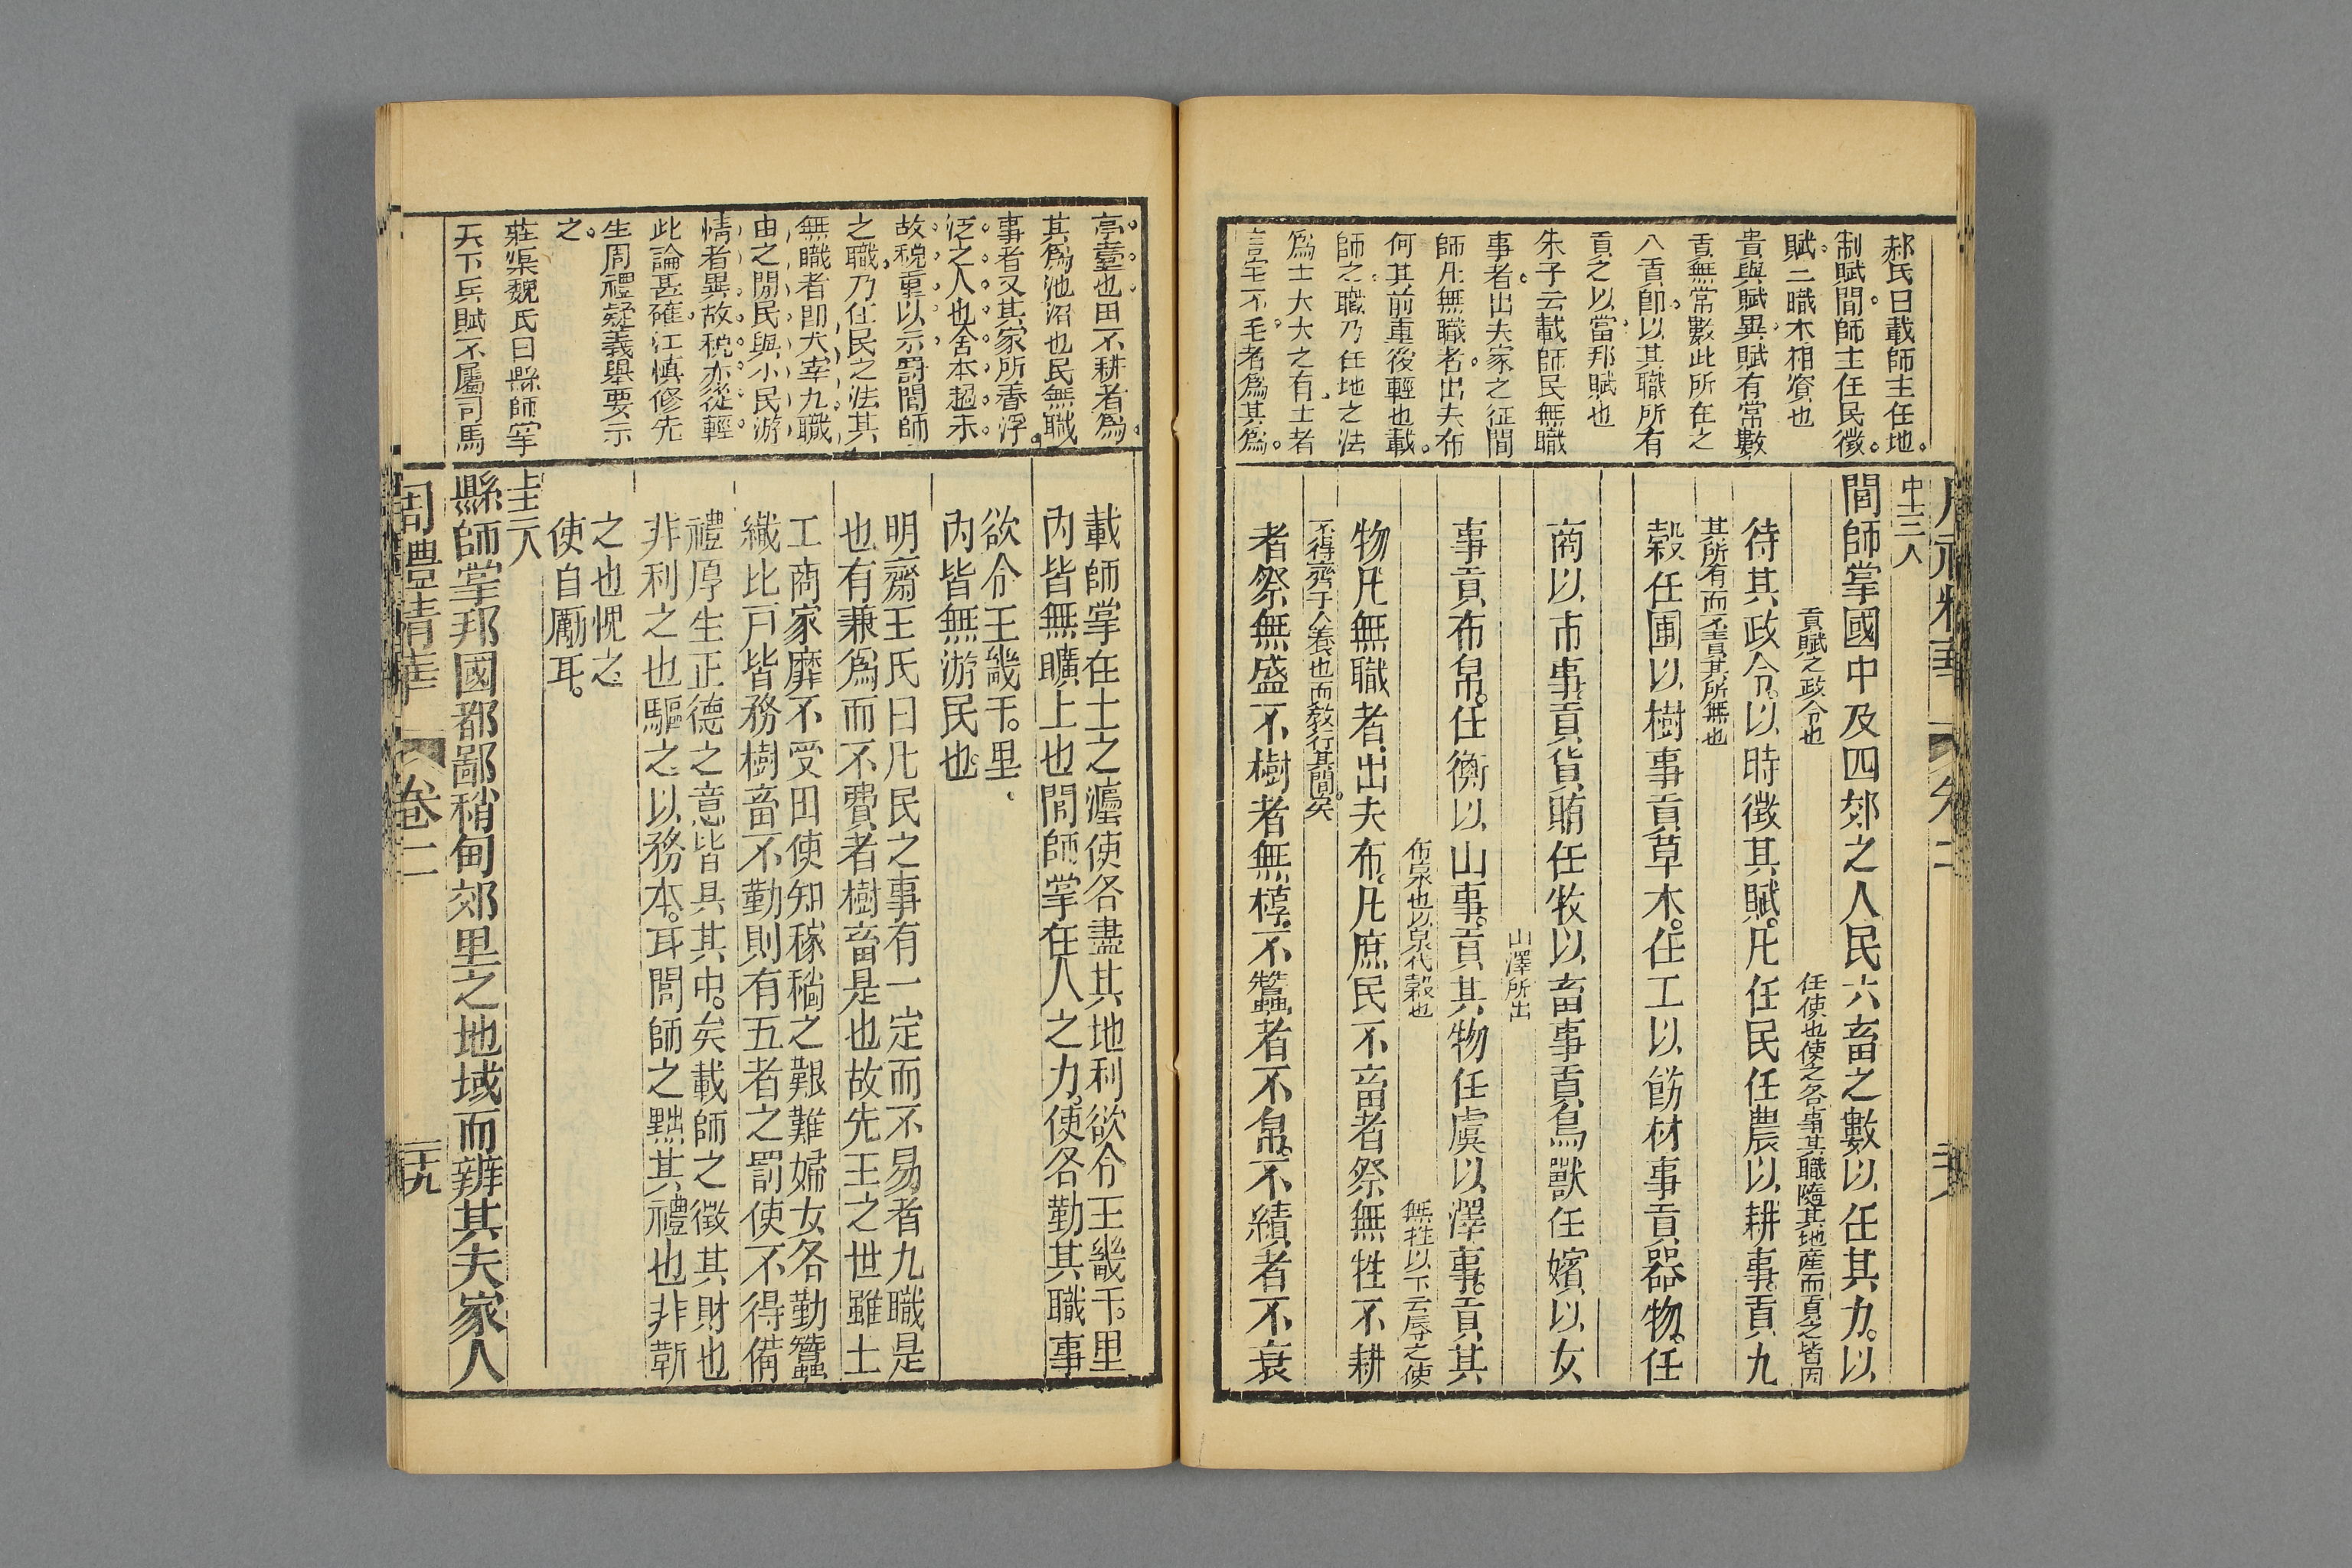 郝氏曰載師主任地
制賦閭師主任民徵
賦二職木相資也
貴與賦異賦有常數
貢無常數此所在之
八貢卽以其職所有
貢之以當邦賦也
朱子云載師民無職
事者出夫家之征閭
師凡無職者出夫布
何其前重後輕也載
師之職乃任地之法
爲士大大之有士者
言宅不毛者爲其爲
中士二人
閭師掌國中及四郊之人民六畜之數以任其力以
貢賦之政令也
任使也使之各事其職隨其地產而貢之皆因
待其政令以時徵其賦凡任民任農以耕事貢九
其所有而不責其所無也
穀任圃以樹事貢草木任工以飭材事貢器物任
商以市事貢貨賄任牧以畜事貢鳥獸任嬪以女
山澤所出
事貢布帛任衡以山事貢其物任虞以澤事貢其
布泉也以泉代穀也
無牲以下云辱之使
物凡無職者出夫布凡庶民不畜者祭無牲不耕
不得齊于人養也而敎行其間矣
者祭無盛不樹者無椁不蠶者不帛不績者不衰
亭臺也田不耕者爲
其爲池沼也民無職
事者又其家所養浮
泛之人也舍本趨末
故税重以示罰閭師
之職乃任民之法其
無職者卽大宰九職
由之閒民與小民游
情者異故税亦從輕
此論甚確江慎修先
生周禮疑義舉要示
之
莊渠魏氏曰縣師掌
天下兵賦不屬司馬
載師掌在土之灋使各盡其地利欲令王畿千里
内皆無曠土也閭師掌在人之力使各勤其職事
欲令王畿千里
内皆無游民也
明齋王氏曰凡民之事有一定而不易者九職是
也有兼爲而不費者樹畜是也故先王之世雖士
工商家靡不受田使知稼穡之艱難婦女各勤蠶
織比戸皆務樹畜不勤則有五者之罰使不得備
禮厚生正德之意皆具其中矣載師之徵其財也
非利之也驅之以務本耳閭師之黜其禮也非靳
之也愧之
使自勵耳
上士二人
縣師掌邦國都鄙稍甸郊里之地域而辨其夫家人
周禮精華
卷二
二十九